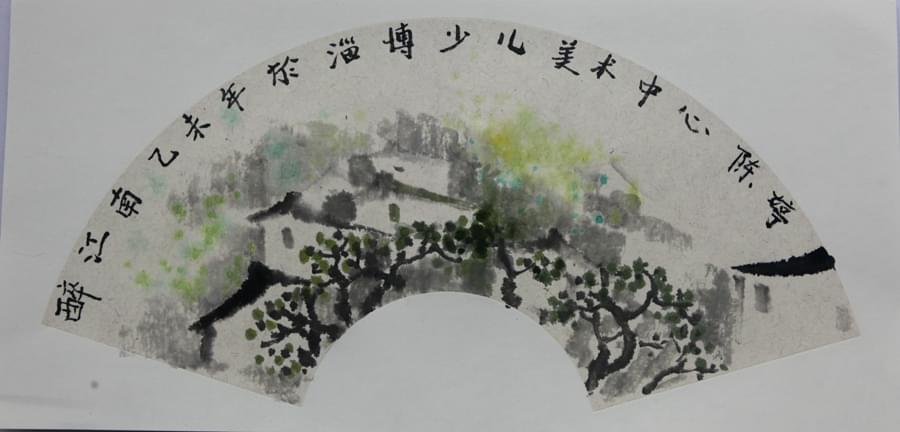 醉江南 乙未年於淄博少儿美术中心 陈婷